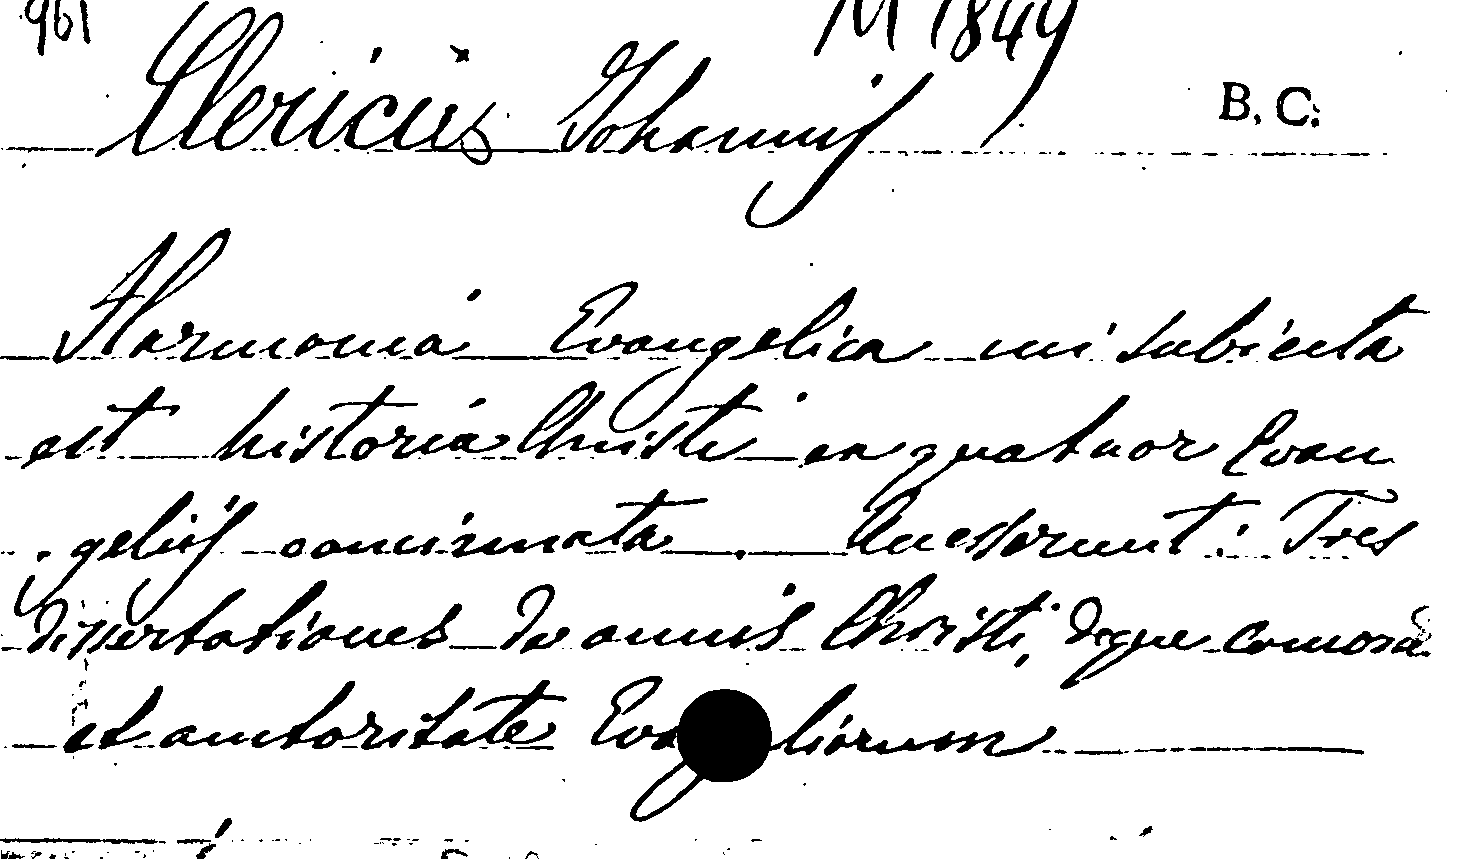 961 M 1849
Clericus Johannis
B. C.
Harmonia Evangelica cui subiecta
est historia Christi ex quatuor Evan
geliis concinnata. Accesserunt: Tres
dissertationes de annis Christi, deque concord.
et auctoritate Evangeliorum